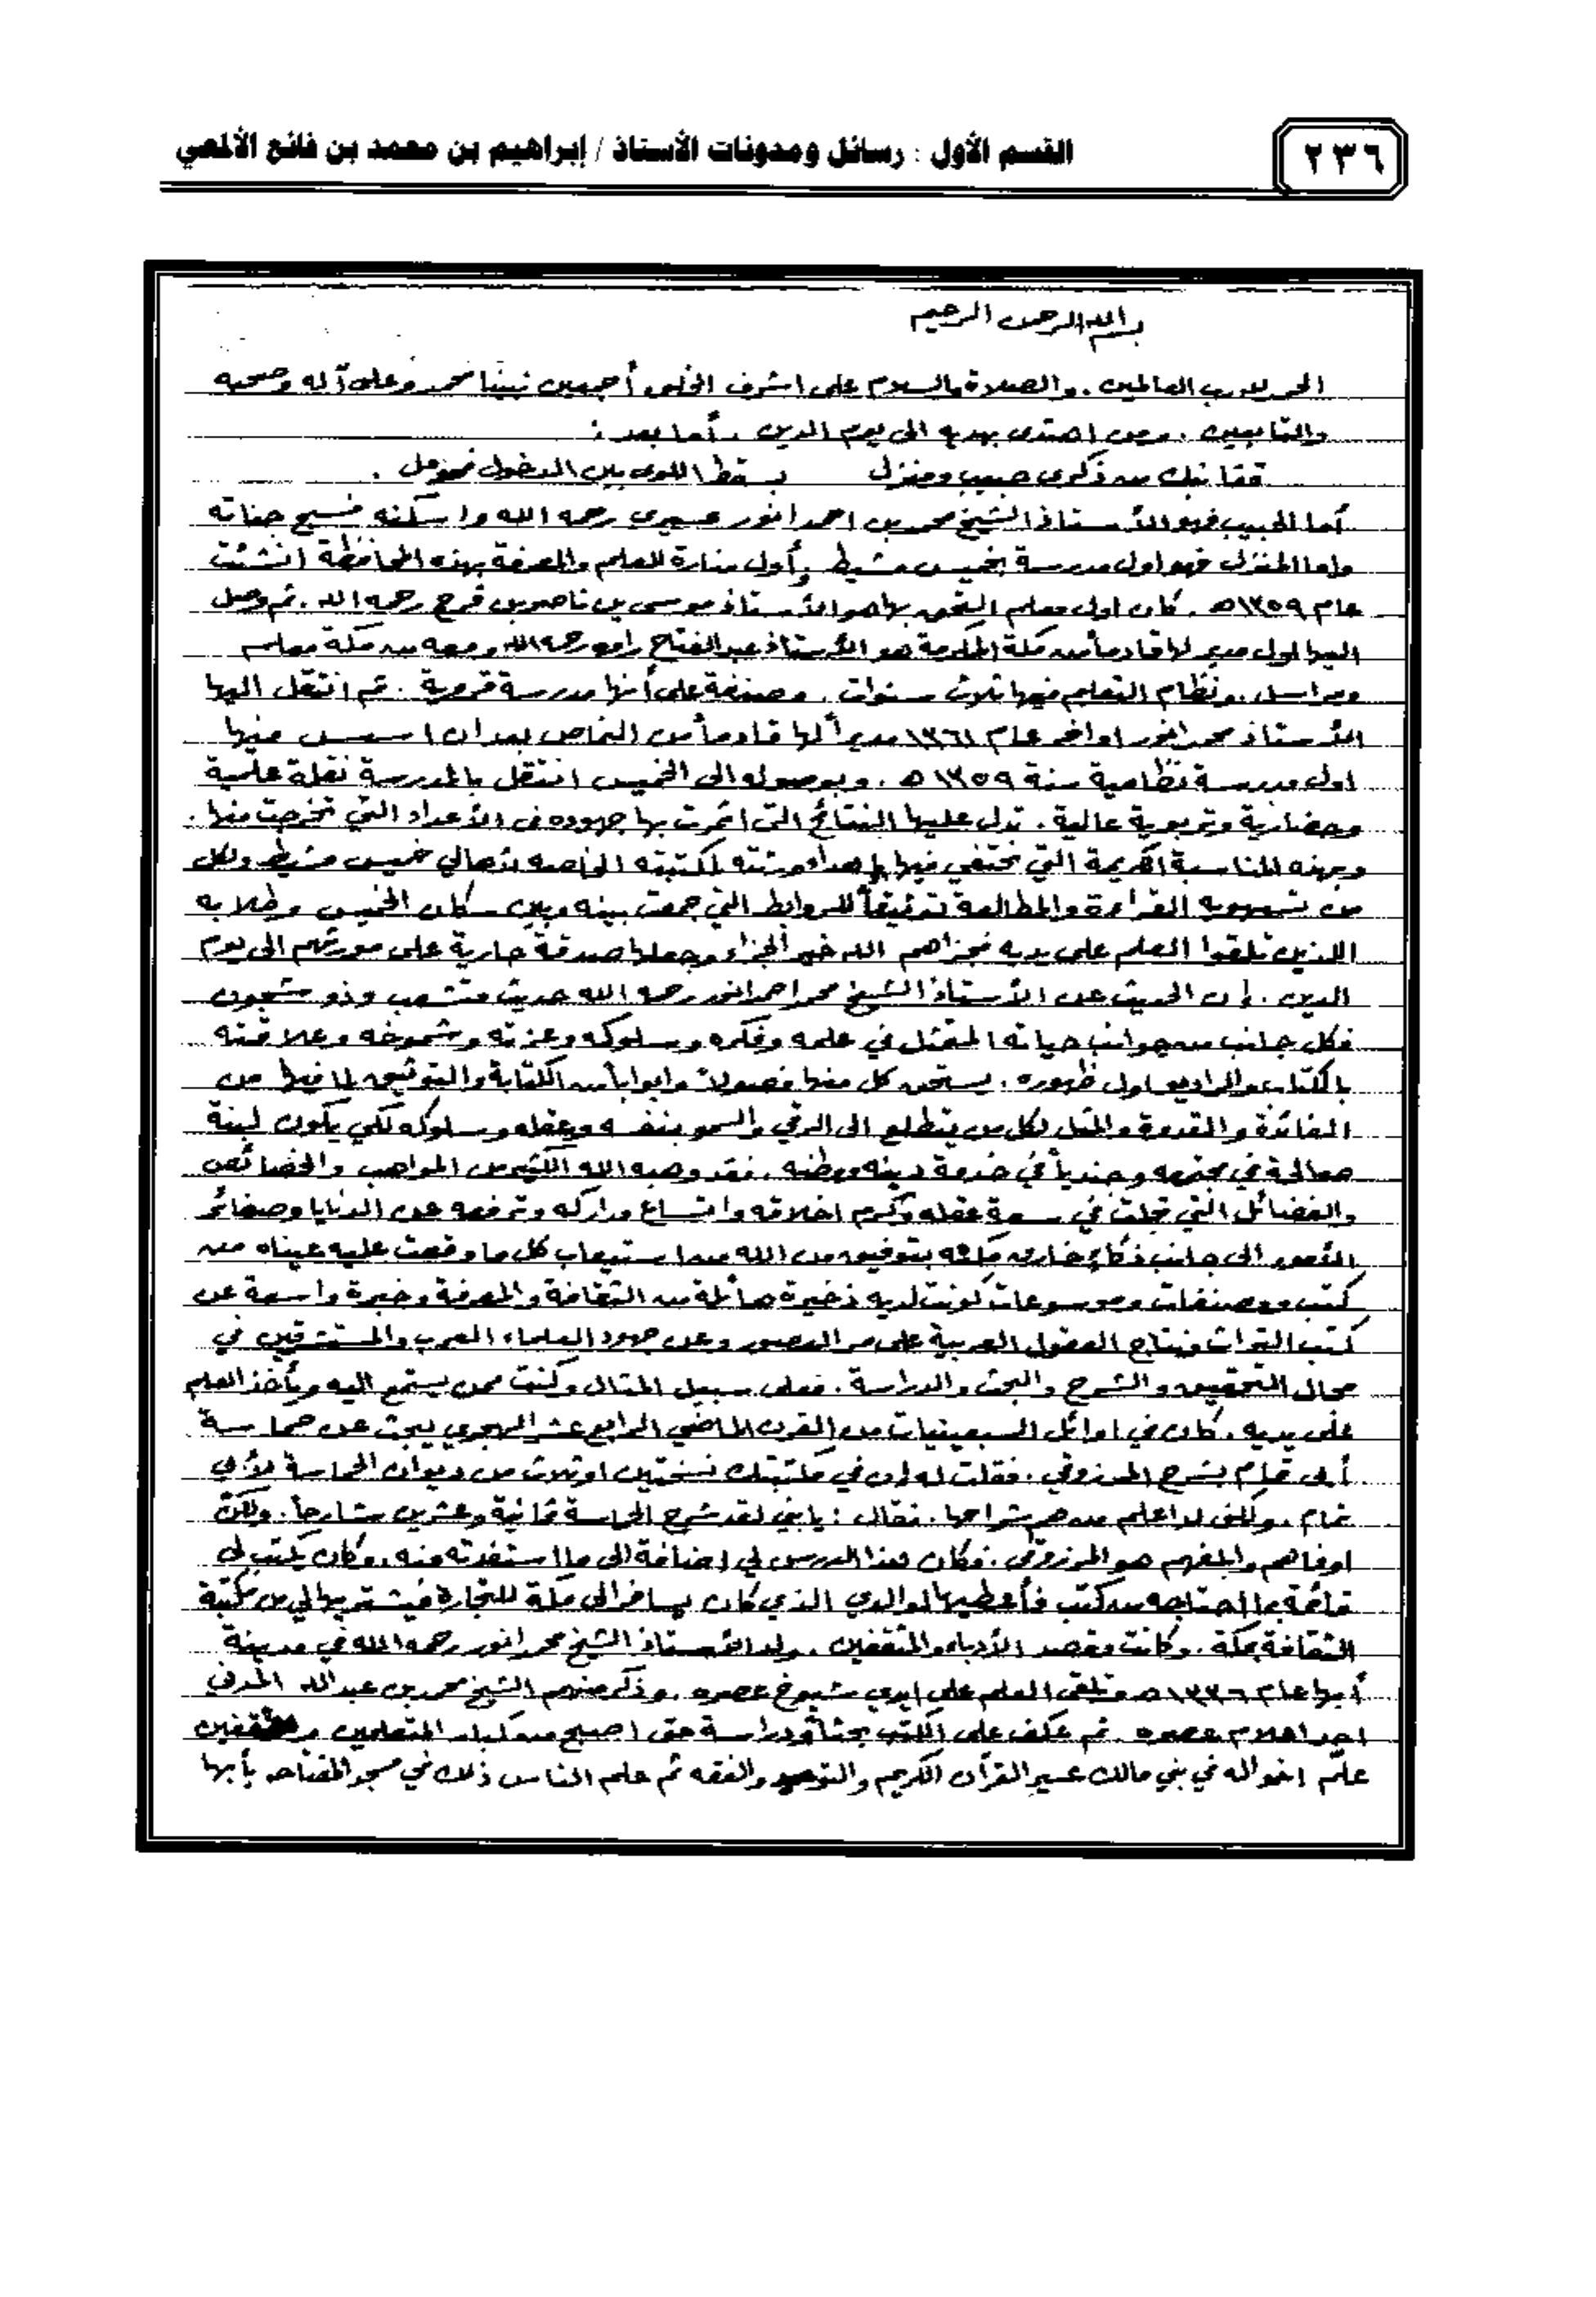 ٢٣٦
القسم الأول : رسائل ومدونات الأستاذ / إبراهيم بن محمد بن فائع الألمعي
بسم الله الرحمن الرحيم
الحمد لله رب العالمين . والصلاة والسلام على اشرف الخلق أجمعين نبينا محمد وعلى آله وصحبه
والتابعين . ومن اهتدى بهديه الى يوم الدين . أما بعد :
قفا نبك من ذكرى حبيب ومنزل بسقط اللوى بين الدخول فحومل .
أما الحبيب فهو الأستاذ الشيخ محمد بن احمد انور عسيري رحمه الله واسكنه فسيح جناته
واما المنزل فهو اول مدرسة بخميس مشيط وأول منارة للعلم والمعرفة بهذه المحافظة انشئت
عام ١٣٥٩هـ . كان اول معلم التحق بها هو الأستاذ موسى بن ناصر بن فرج رحمه الله . ثم وصل
اليها اول مدير لها قادماً من مكة المكرمة هو الأستاذ عبدالفتاح راوه رحمه الله ومعه من مكة معلم
ومراسل . ونظام التعليم فيها ثلاث سنوات . ومصنفة على أنها مدرسة قروية . ثم انتقل اليها
الأستاذ محمد انور اواخر عام ١٣٦١ مديراً لها قادماً من النماص بعد ان اسس فيها
اول مدرسة نظامية سنة ١٣٥٩هـ . وبوصوله الى الخميس انتقل بالمدرسة نقلة علمية
وحضارية وتربوية عالية . تدل عليها النتائج التي اثمرت بها جهوده في الأعداد التي تخرجت منها .
وبهذه المناسبة الكريمة التي نحتفي فيها بإهداء ورثته لمكتبته الخاصه لأهالي خميس مشيط ولكل
من تستهويه القراءة والمطالعة توثيقاً للروابط التي جمعت بينه وبين سكان الخميس وطلابه
الذين تلقوا العلم على يديه فجزاهم الله خير الجزاء وجعلها صدقة جارية على مورثهم الى يوم
الدين . إن الحديث عن الأستاذ الشيخ محمد احمد انور رحمه الله حديث متشعب وذو شجون
فكل جانب من جوانب حياته المتمثل في علمه وفكره وسلوكه وعزته وشموخه وعلاقته
بالكتاب والراديو اول ظهوره . يستحق كل منها فصولاً وابواباً من الكتابة والتوثيق لما فيها من
الفائدة والقدوة والمثل لكل من يتطلع الى الرقي والسمو بنفسه وعقله وسلوكه لكي يكون لبنة
صالحة في مجتمعه وجندياً في خدمة دينه ووطنه . فقد وهبه الله الكثير من المواهب والخصائص
والفضائل التي تجلت في سعة عقله وكرم اخلاقه واتساع مداركه وترفعه عن الدنايا وصغائر
الأمور الى جانب ذكاء خارق مكنه بتوفيق من الله من استيعاب كل ما وقعت عليه عيناه من
كتب ومصنفات وموسوعات كونت لديه ذخيرة هائلة من الثقافة والمعرفة وخبرة واسعة عن
كتب التراث ونتاج العقول العربية على مر العصور وعن جهود العلماء العرب والمستشرقين في
مجال التحقيق والشرح والبحث والدراسة . فعلى سبيل المثال وكنت ممن يستمع اليه ويأخذ العلم
على يديه . كان في اوائل السبعينيات من القرن الماضي الرابع عشر الهجري يبحث عن حماسة
أبي تمام بشرح المرزوقي . فقلت له إن في مكتبتك نسختين او ثلاث من ديوان الحماسة لأبي
تمام . ولكني لا اعلم من هم شراحها . فقال : يابني لقد شرح الحماسة ثمانية وعشرين شارحاً . ولكن
اوفاهم وابلغهم هو المرزوقي . فكان هذا الدرس لي إضافة الى ما استفدته منه . وكان يكتب لي
قائمة بما احتاجه من كتب فأعطيها لوالدي الذي كان يسافر الى مكة للتجارة فيشتريها لي من مكتبة
الثقافة بمكة . وكانت مقصد الأدباء والمثقفين . ولد الأستاذ الشيخ محمد انور رحمه الله في مدينة
أبها عام ١٣٣٦هـ وتلقى العلم على ايدي شيوخ عصره . وذكر منهم الشيخ محمد بن عبدالله المدني
احد اعلام عصره . ثم عكف على الكتب بحثاً ودراسة حتى اصبح من كبار المتعلمين والمثقفين
علّم اخواله في بني مالك عسير القرآن الكريم والتوحيد والفقه ثم علم الناس ذلك في مسجد المفتاحه بأبها